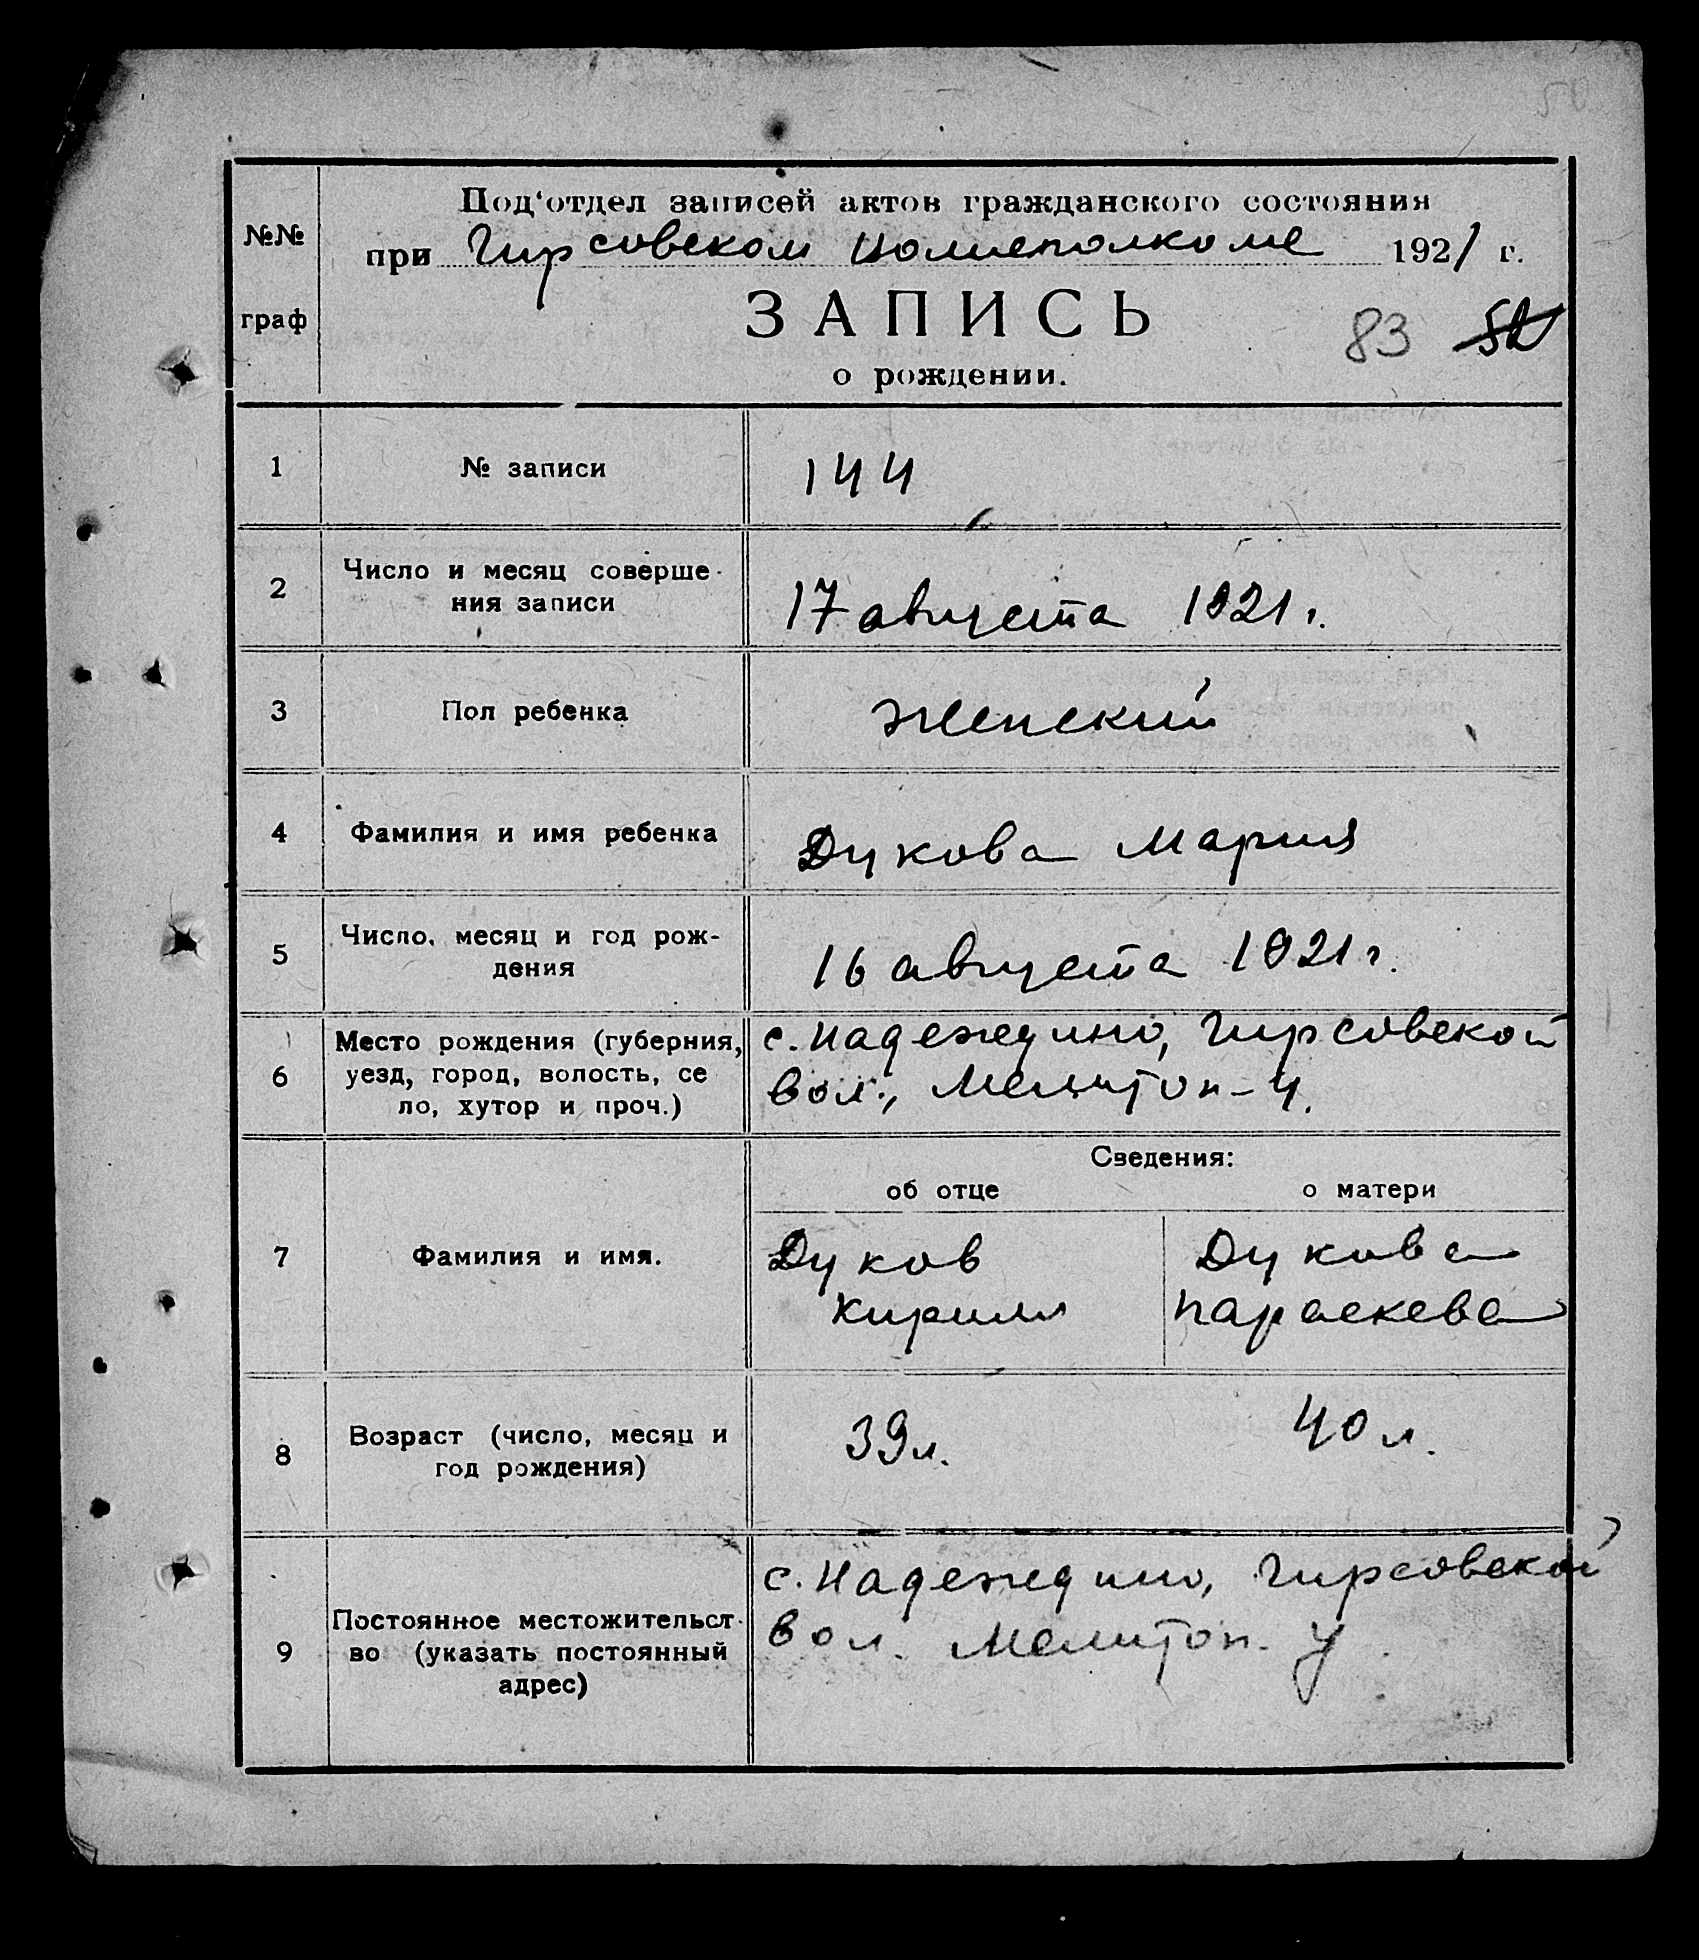 50
№№ граф
Под‘отдел записей актов гражданского состояния
при Гирсовском 1921 г.
ЗАПИСЬ
83 52
о рождении.
1 № записи 144
2 Число и месяц соверше-
ния записи 17 августа 1921 г.
3 Пол ребенка Женский
4 Фамилия и имя ребенка Дукова Мария
5 Число, месяц и год рож-
дения 16 августа 1921 г.
6 Место рождения (губерния,
уезд, город, волость, се
ло, хутор и проч.)
с. Надеждино, Гирсовской
вол., Мелитоп-у.
Сведения:
об отце о матери
7 Фамилия и имя.
Дуков Дукова
Кирилл Параскева
8 Возраст (число, месяц и
год рождения)
39 л. 40 л.
9 Постоянное местожительст-
во (указать постоянный
адрес)
с. Надеждино, Гирсовской
вол. Мелитоп. у